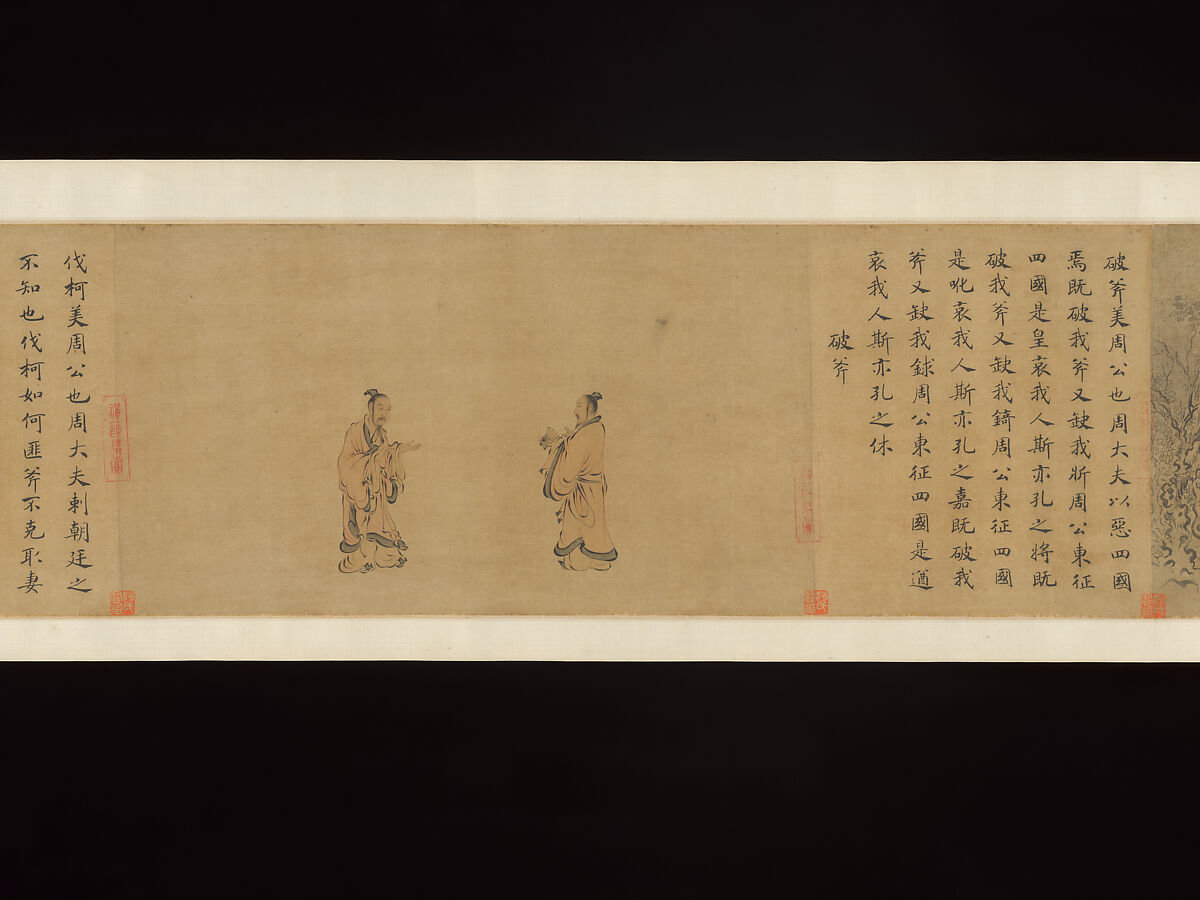 破斧美周公也周大夫以惡四國
焉既破我斧又缺我斨周公東征
四國是皇哀我人斯亦孔之將既
破我斧又缺我錡周公東征四國
是吪哀我人斯亦孔之嘉既破我
斧又缺我銶周公東征四國是遒
哀我人斯亦孔之休
破斧
伐柯美周公也周大夫刺朝廷之
不知也伐柯如何匪斧不克取妻